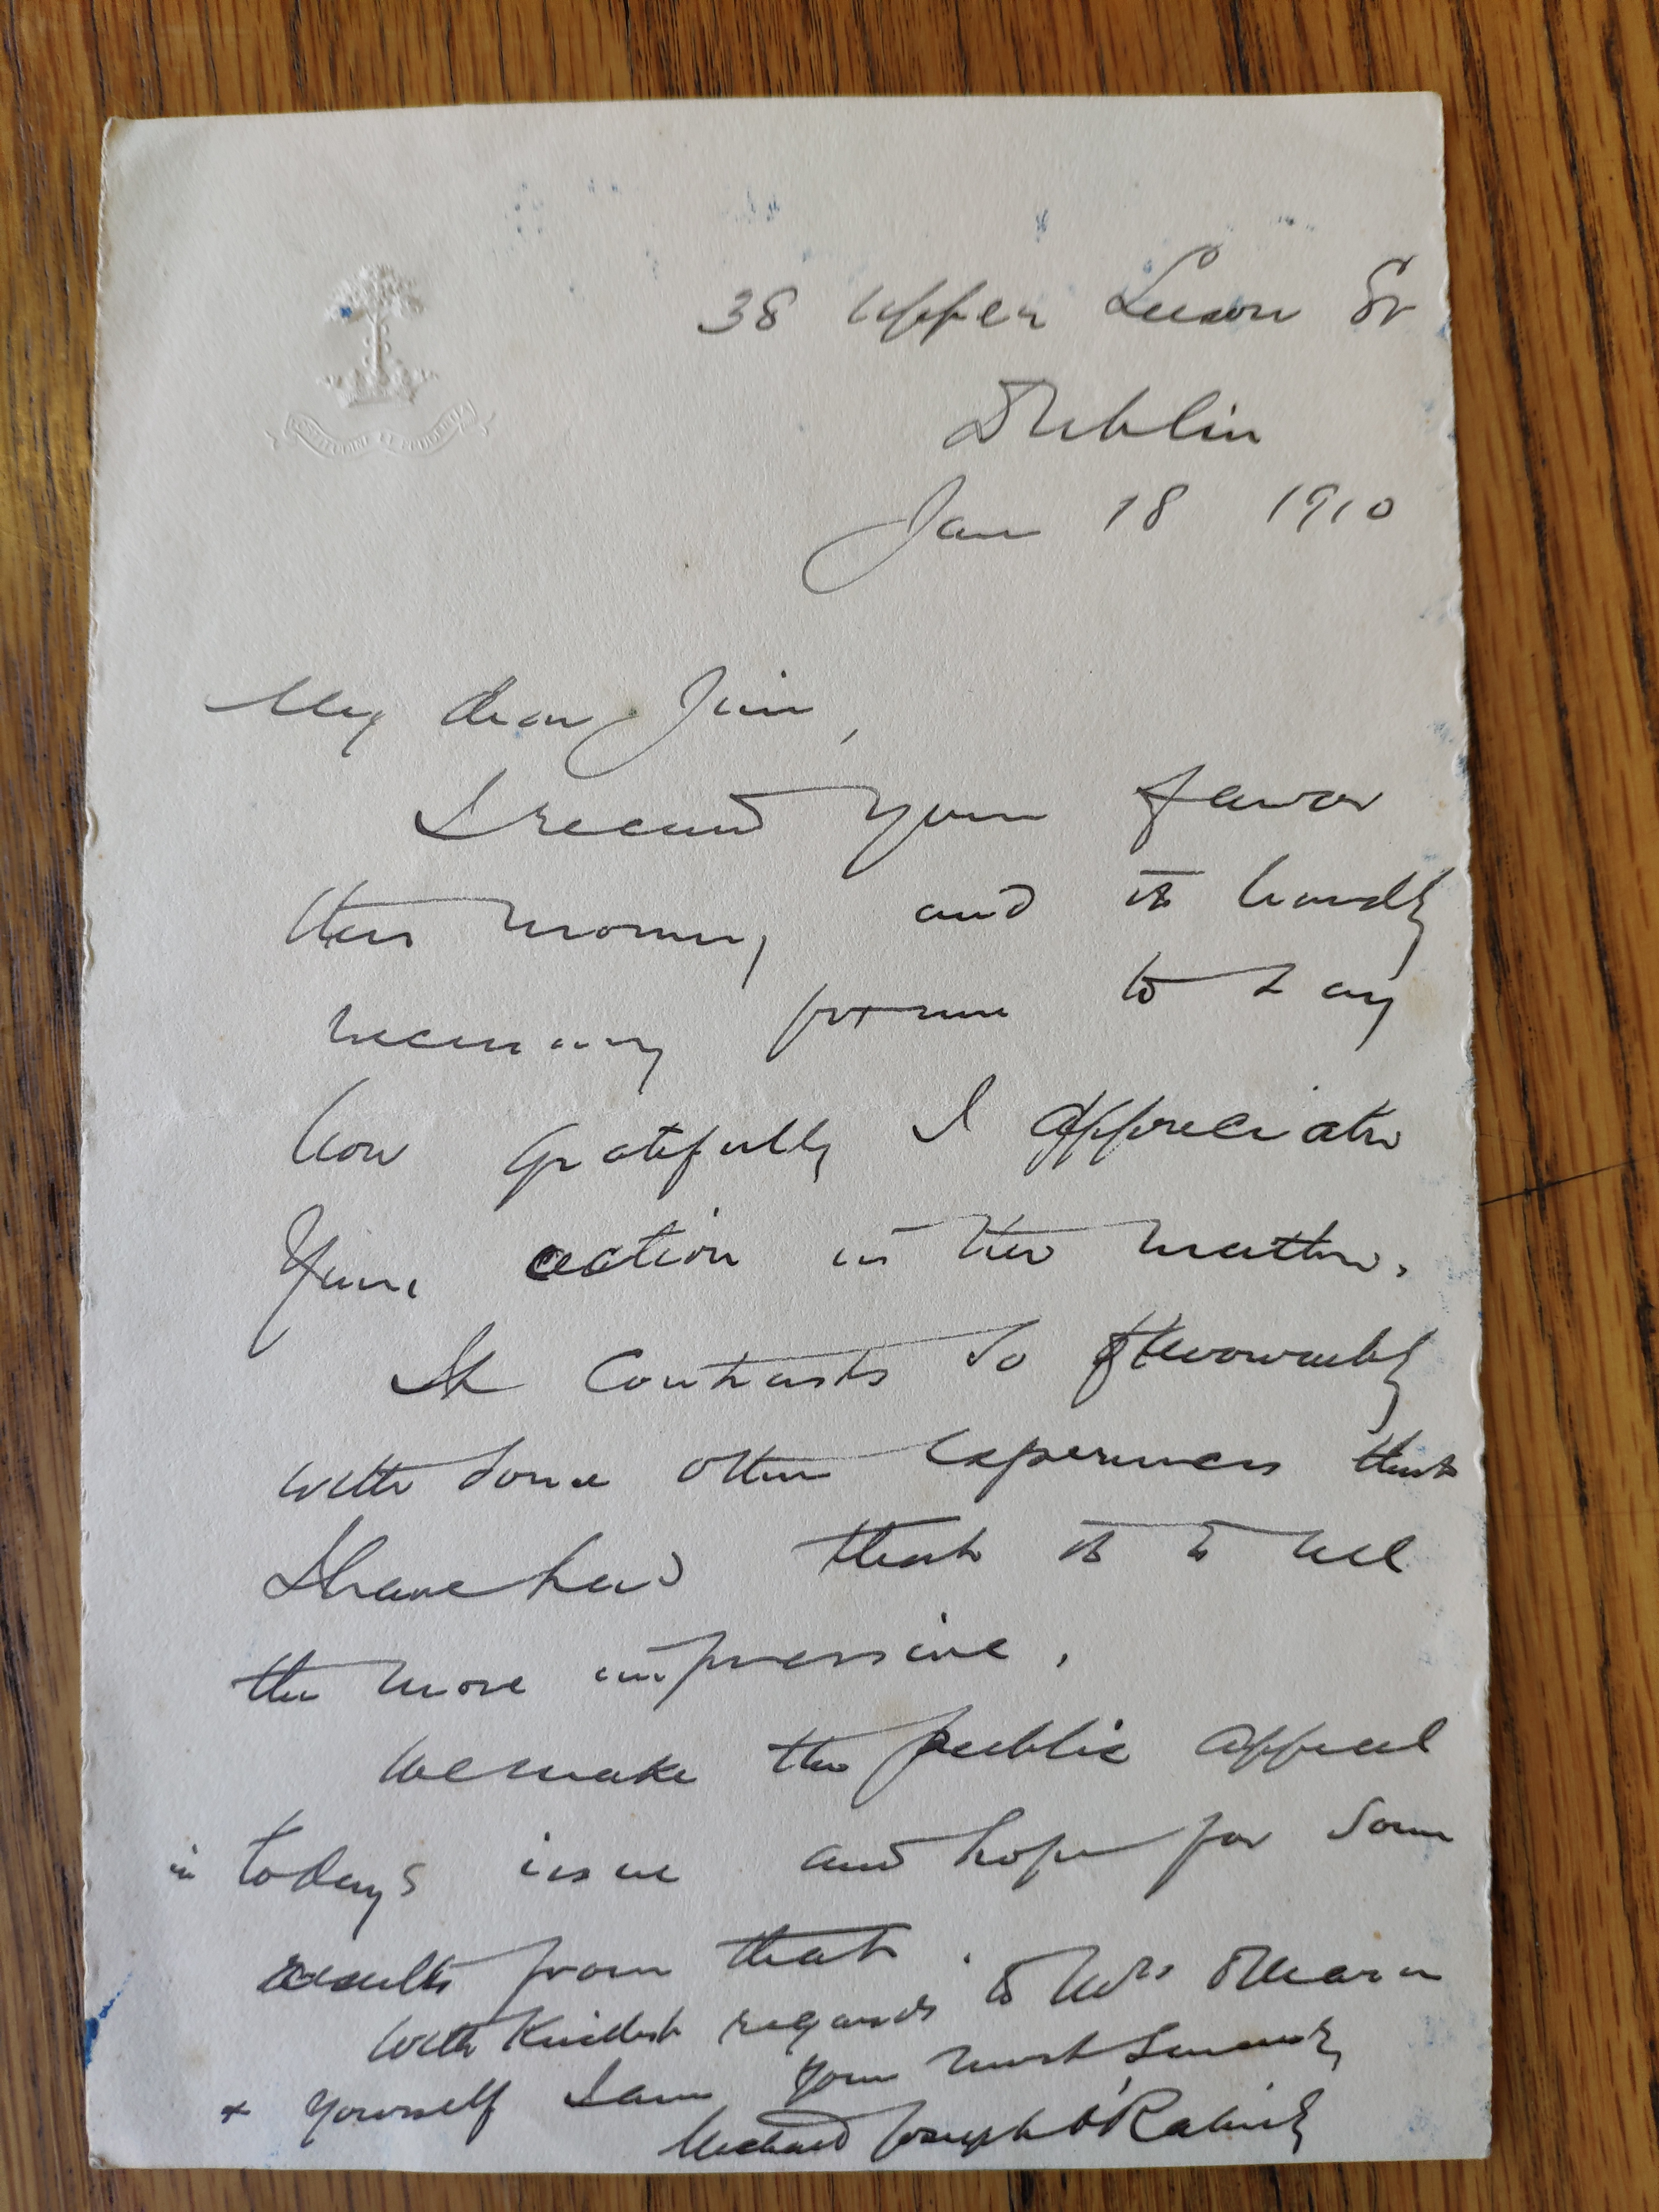 38 Upper Leeson St
Dublin
Jan 18 1910
My dear Jim,
I received your favor
this morning and it hardly
necessary for me to say
how gratefully I appreciate
your action in the matter.
It contrasts so favourably
with some other experiences that
I have had that it is all
the more impressive.
We make the public appeal
in todays issue and hope for some
results from that.
With kindest regards to Mrs
& yourself I am your most sincerely
Michael Joseph O'Rahilly